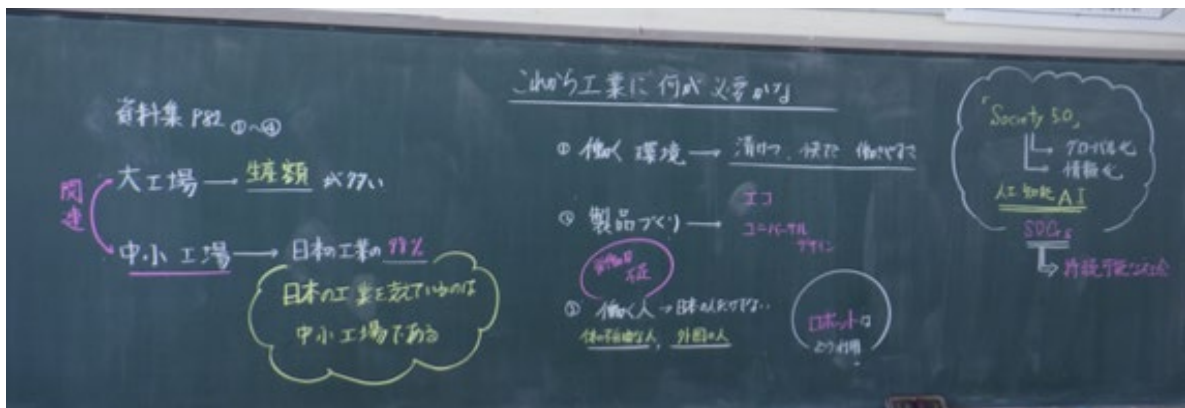 資料集 P82 ①～④
大工場 → 生産額 が多い
関連
中小工場 → 日本の工業の 99%
日本の工業を支えているのは
中小工場である
これから工業に何が必要かな
① 働く環境 → 清けつ、快てき、働きやすさ
② 製品づくり → エコ
ユニバーサル
デザイン
不足
③ 働く人 → 日本の人だけでない
体の不自由な人、外国の人
ロボットは
より利用
「Society 5.0」
グローバル化
情報化
人工知能AI
SDGs
持続可能な社会